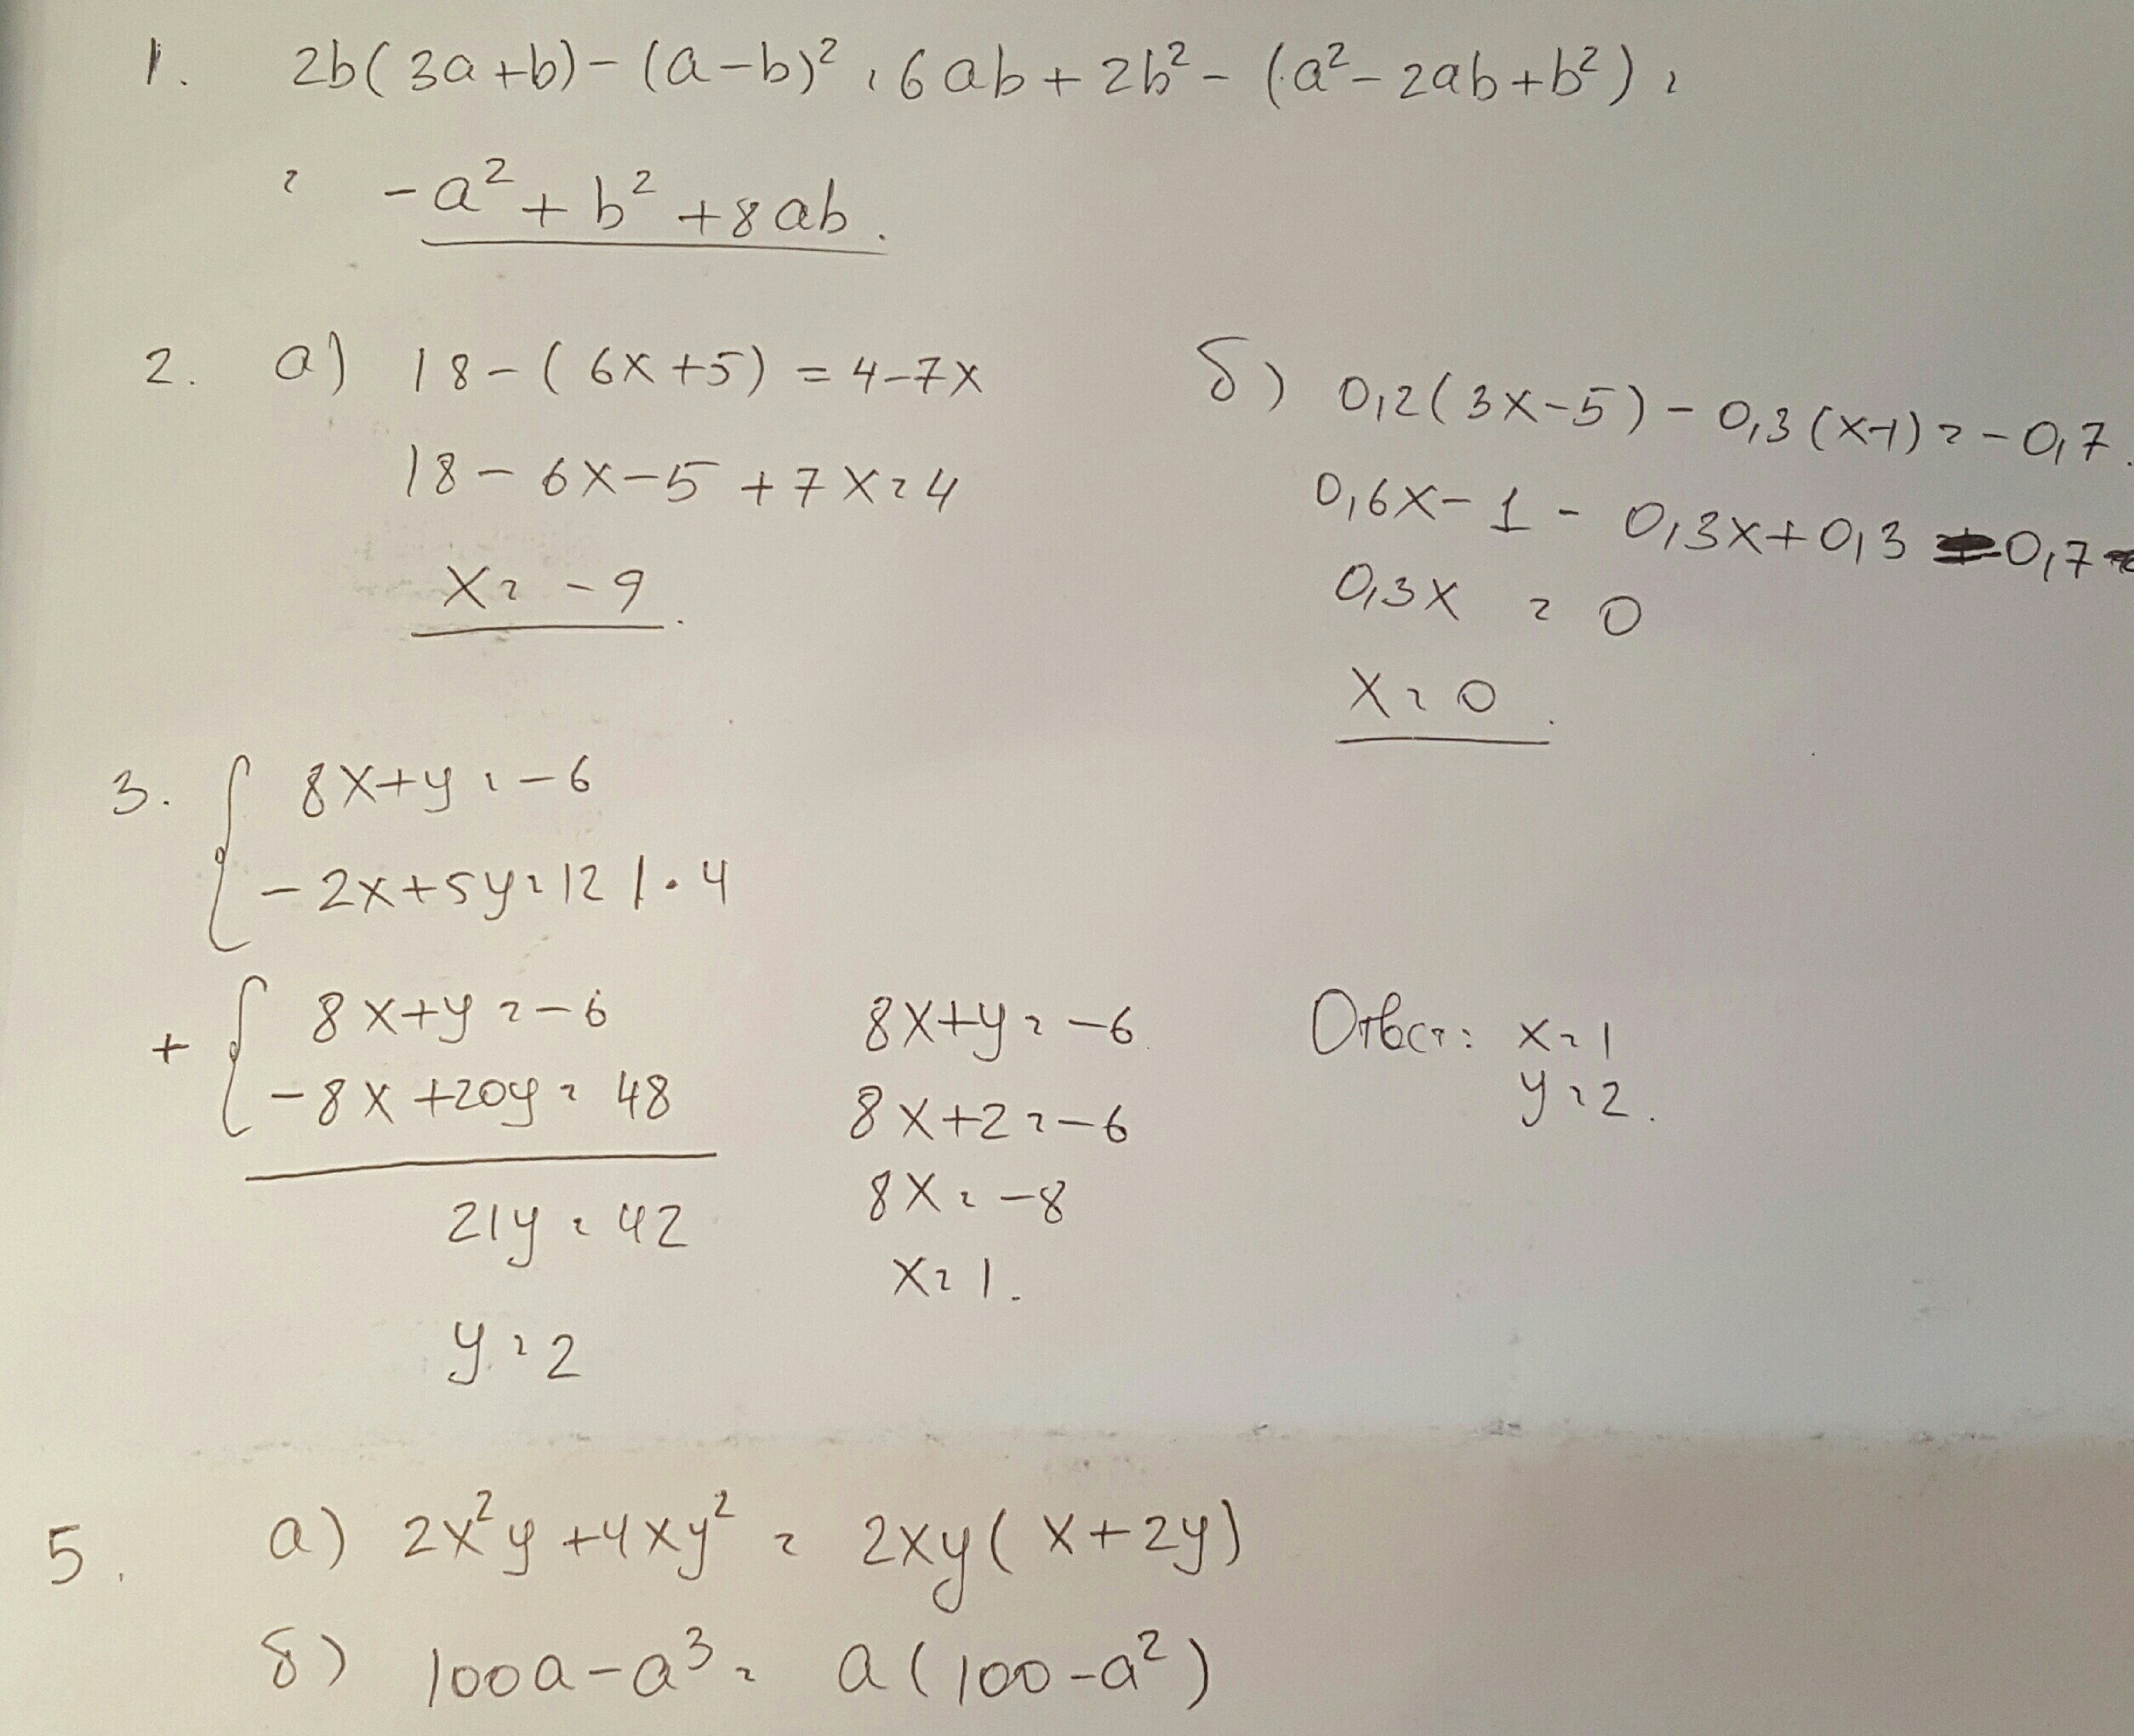 1. 2b(3a+b)-(a-b)² = 6ab+2b²-(a²-2ab+b²) =
= -a²+b²+8ab.
2. а) 18-(6x+5)=4-7x
18-6x-5+7x=4
x=-9.
б) 0,2(3x-5)-0,3(x-1)=-0,7.
0,6x-1-0,3x+0,3+0,7=
0,3x=0
x=0.
3. { 8x+y=-6
-2x+5y=12 |·4
+ { 8x+y=-6
-8x+20y=48
21y=42
y=2
8x+y=-6.
8x+2=-6
8x=-8
x=1.
Ответ: x=1
y=2.
5. а) 2x²y+4xy² = 2xy(x+2y)
б) 100a-a³ = a(100-a²)